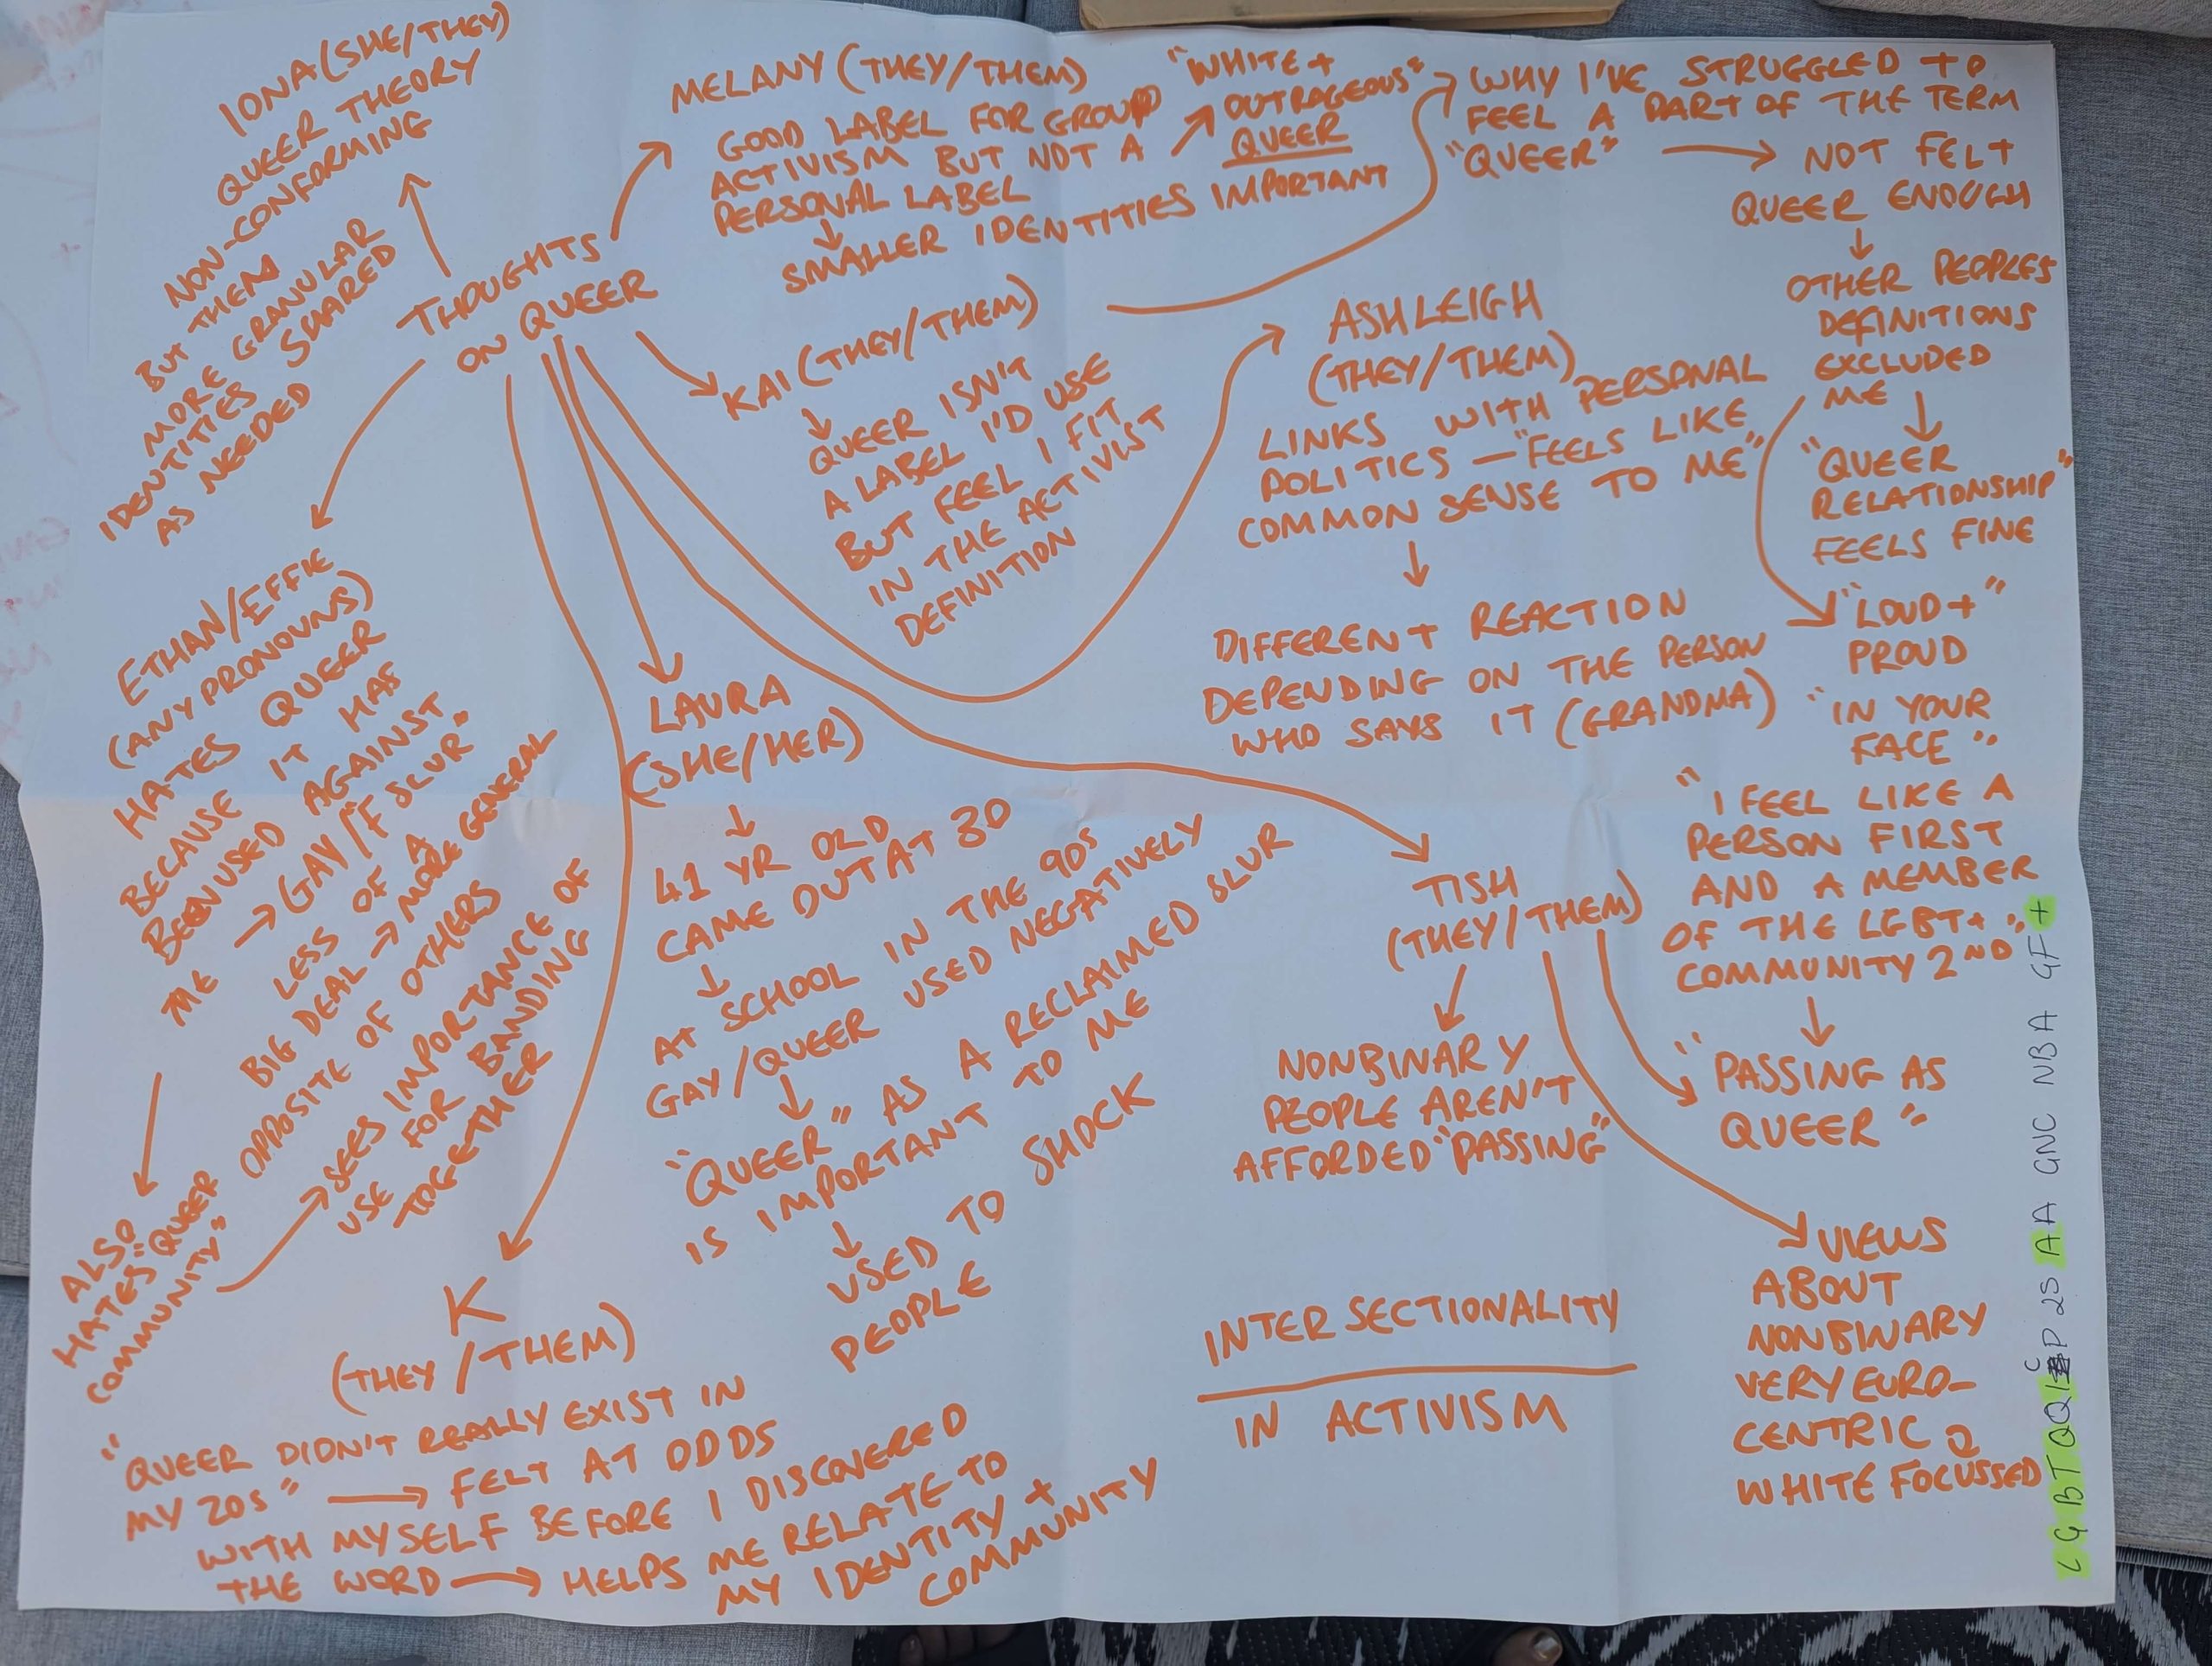 THOUGHTS
ON QUEER
IONA (SHE/THEY)
QUEER THEORY
NON-CONFORMING
BUT THEM
MORE GRANULAR
IDENTITIES SHARED
AS NEEDED
MELANY (THEY/THEM)
GOOD LABEL FOR GROUP
ACTIVISM BUT NOT A
PERSONAL LABEL
SMALLER IDENTITIES IMPORTANT
"WHITE +
OUTRAGEOUS"
QUEER
KAI (THEY/THEM)
QUEER ISN'T
A LABEL I'D USE
BUT FEEL I FIT
IN THE ACTIVIST
DEFINITION
WHY I'VE STRUGGLED TO
FEEL A PART OF THE TERM
"QUEER"
NOT FELT
QUEER ENOUGH
OTHER PEOPLES
DEFINITIONS
EXCLUDED
ME
"QUEER
RELATIONSHIP"
FEELS FINE
"LOUD + "
PROUD
"IN YOUR
FACE"
"I FEEL LIKE A
PERSON FIRST
AND A MEMBER
OF THE LGBT+
COMMUNITY 2ND"
"PASSING AS
QUEER"
ASHLEIGH
(THEY/THEM)
LINKS WITH PERSONAL
POLITICS — "FEELS LIKE
COMMON SENSE TO ME"
DIFFERENT REACTION
DEPENDING ON THE PERSON
WHO SAYS IT (GRANDMA)
TISH
(THEY/THEM)
NONBINARY
PEOPLE AREN'T
AFFORDED "PASSING"
VIEWS
ABOUT
NONBINARY
VERY EURO-
CENTRIC &
WHITE FOCUSSED
LAURA
(SHE/HER)
41 YR OLD
CAME OUT AT 30
AT SCHOOL IN THE 90s
GAY/QUEER USED NEGATIVELY
"QUEER" AS A RECLAIMED SLUR
IS IMPORTANT TO ME
USED TO SHOCK
PEOPLE
K
(THEY/THEM)
"QUEER DIDN'T REALLY EXIST IN
MY 20s" FELT AT ODDS
WITH MYSELF BEFORE I DISCOVERED
THE WORD HELPS ME RELATE TO
MY IDENTITY +
COMMUNITY
ETHAN/EFFIE
(ANY PRONOUNS)
HATES QUEER
BECAUSE IT HAS
BEEN USED AGAINST
ME GAY/"F SLUR"
LESS OF A
BIG DEAL MORE GENERAL
OPPOSITE OF OTHERS
ALSO
HATES "QUEER
COMMUNITY"
SEES IMPORTANCE OF
USE FOR BANDING
TOGETHER
INTERSECTIONALITY
IN ACTIVISM
LGBTQQI C P 2S A A GNC NBA GF +